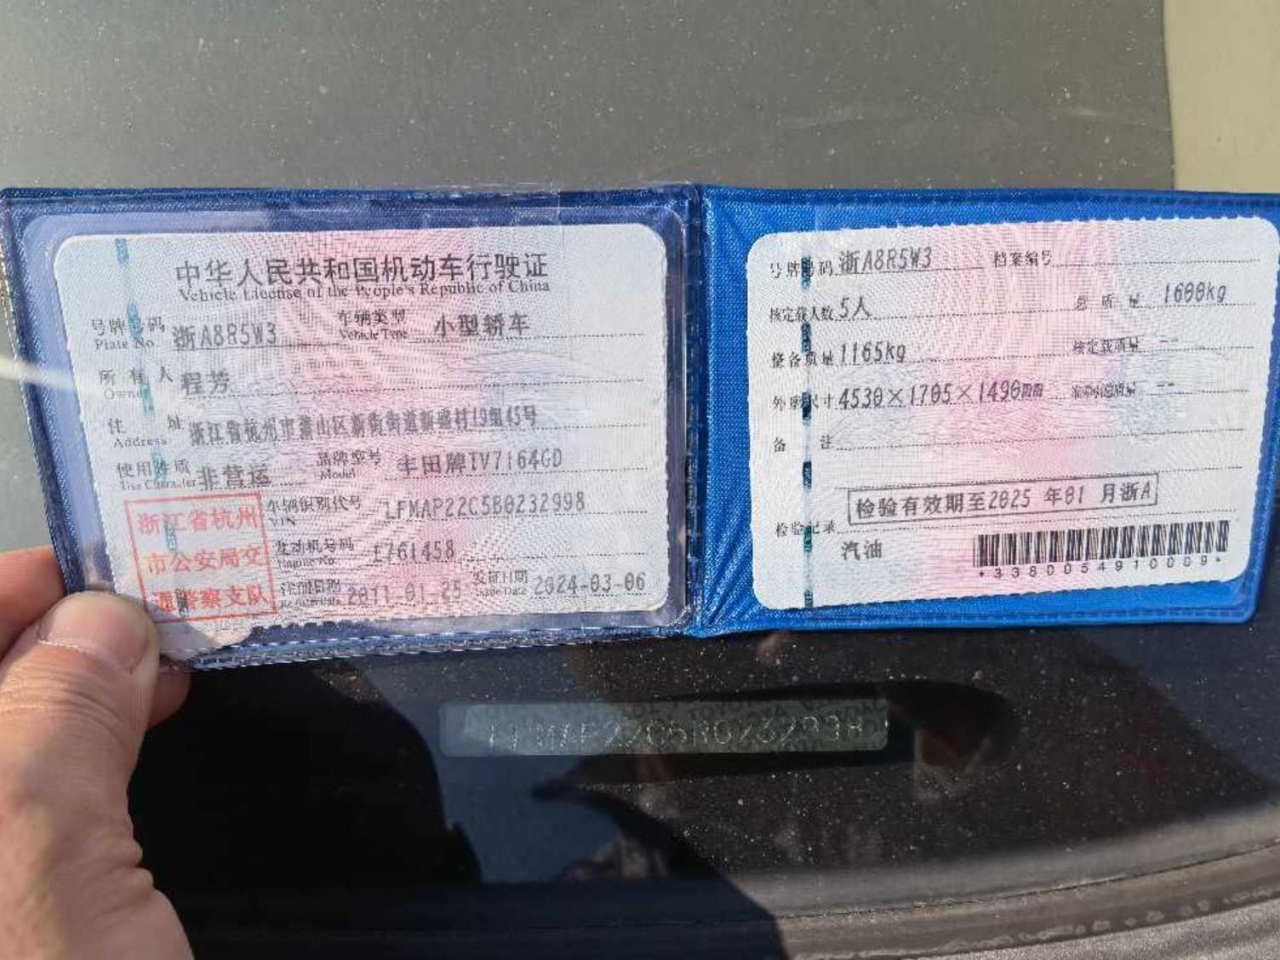 中华人民共和国机动车行驶证
Vehicle License of the People's Republic of China
号牌号码 浙A8R5W3 车辆类型 小型轿车
Plate No. Vehicle Type
所有人 程芳
Owner
住址 浙江省杭州市萧山区新街街道新盛村19组45号
Address
使用性质 非营运 品牌型号 丰田牌TV7164GD
Use Character Model
浙江省杭州
市公安局交
通警察支队
车辆识别代号 LFMAP22C5B0232998
VIN
发动机号码 E761458
Engine No.
注册日期 2011-01-25 发证日期 2024-03-06
Issue Date
号牌号码 浙A8R5W3 档案编号
核定载人数 5人 总质量 1600kg
整备质量 1165kg 核定载质量 --
外廓尺寸 4530×1705×1490mm 准牵引总质量 --
备注
检验有效期至2025年01月浙A
检验记录
汽油
*3380054910009*
LFMAP22C5B0232998